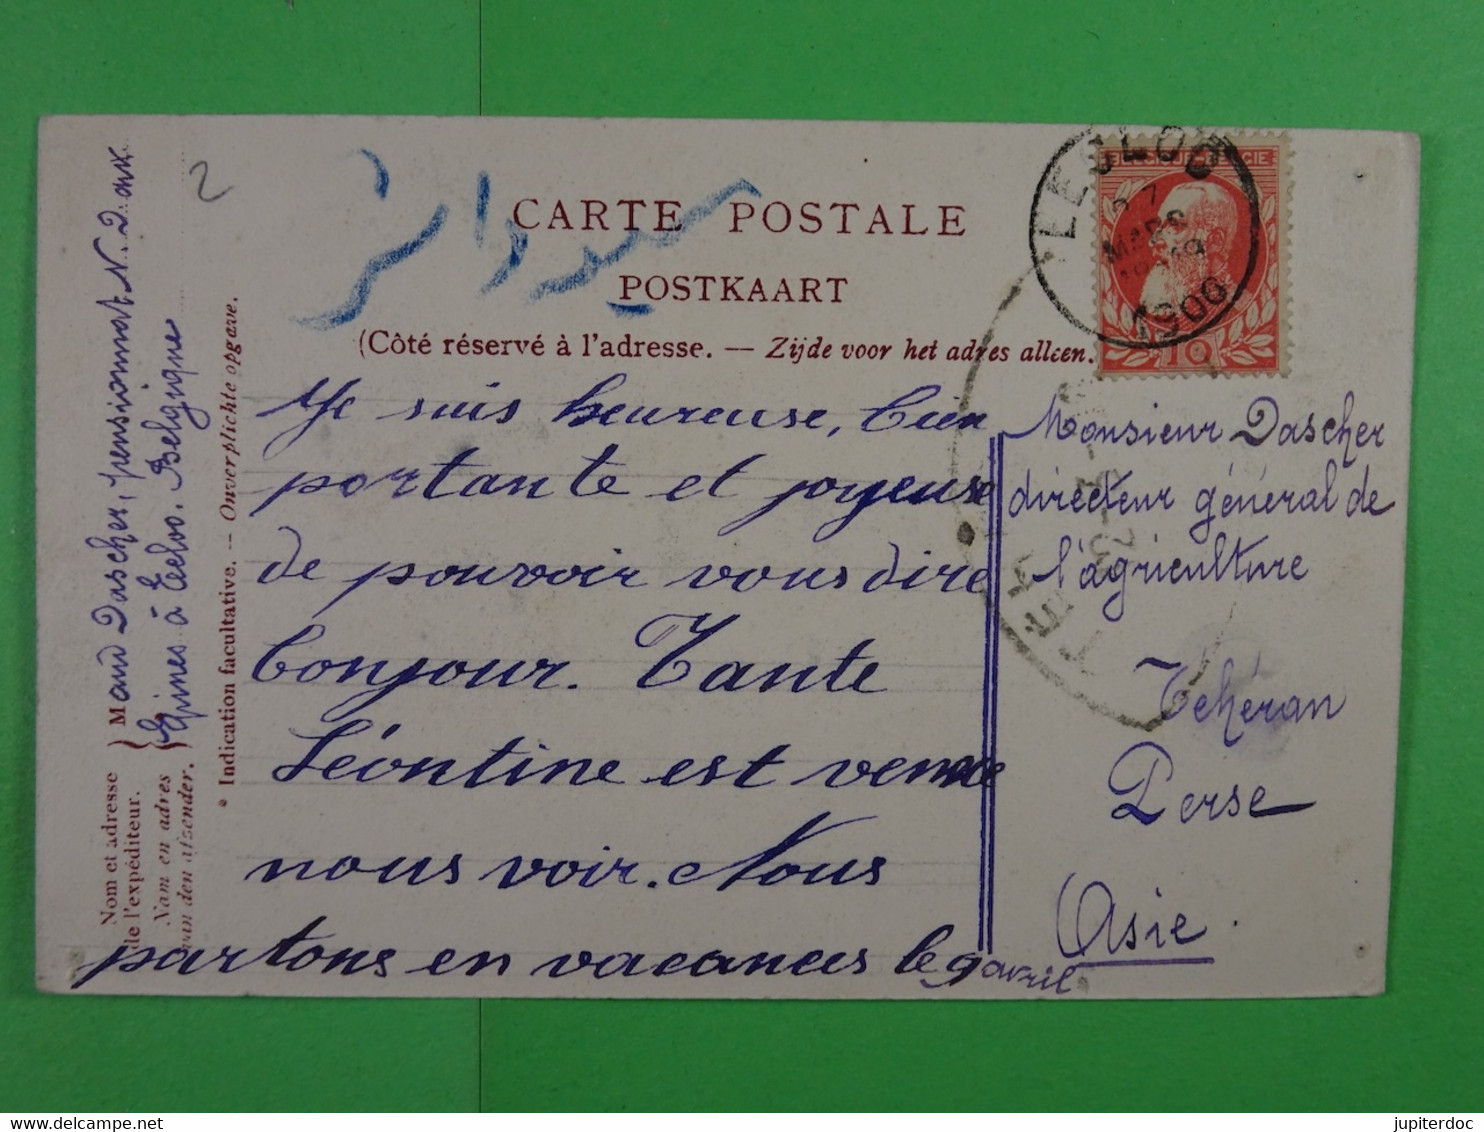 2
CARTE POSTALE
POSTKAART
(Côté réservé à l'adresse. — Zijde voor het adres alleen.
EECLOO
MARS
1900
BELGIQUE BELGIE
10
TEHERAN
Je suis heureuse, bien
portante et joyeuse
de pouvoir vous dire
bonjour. Tante
Léontine est venue
nous voir. Nous
partons en vacances le 9 avril
Monsieur Dascher
directeur général de
l'agriculture
Téhéran
Perse
Asie.
Nom et adresse
de l'expéditeur.
Naam en adres
van den afzender.
Maud Dascher, pensionnat N. D. aux
Epines à Eecloo. Belgique
* Indication facultative. — Onverplichte opgave.
www.delcampe.net
jupiterdoc